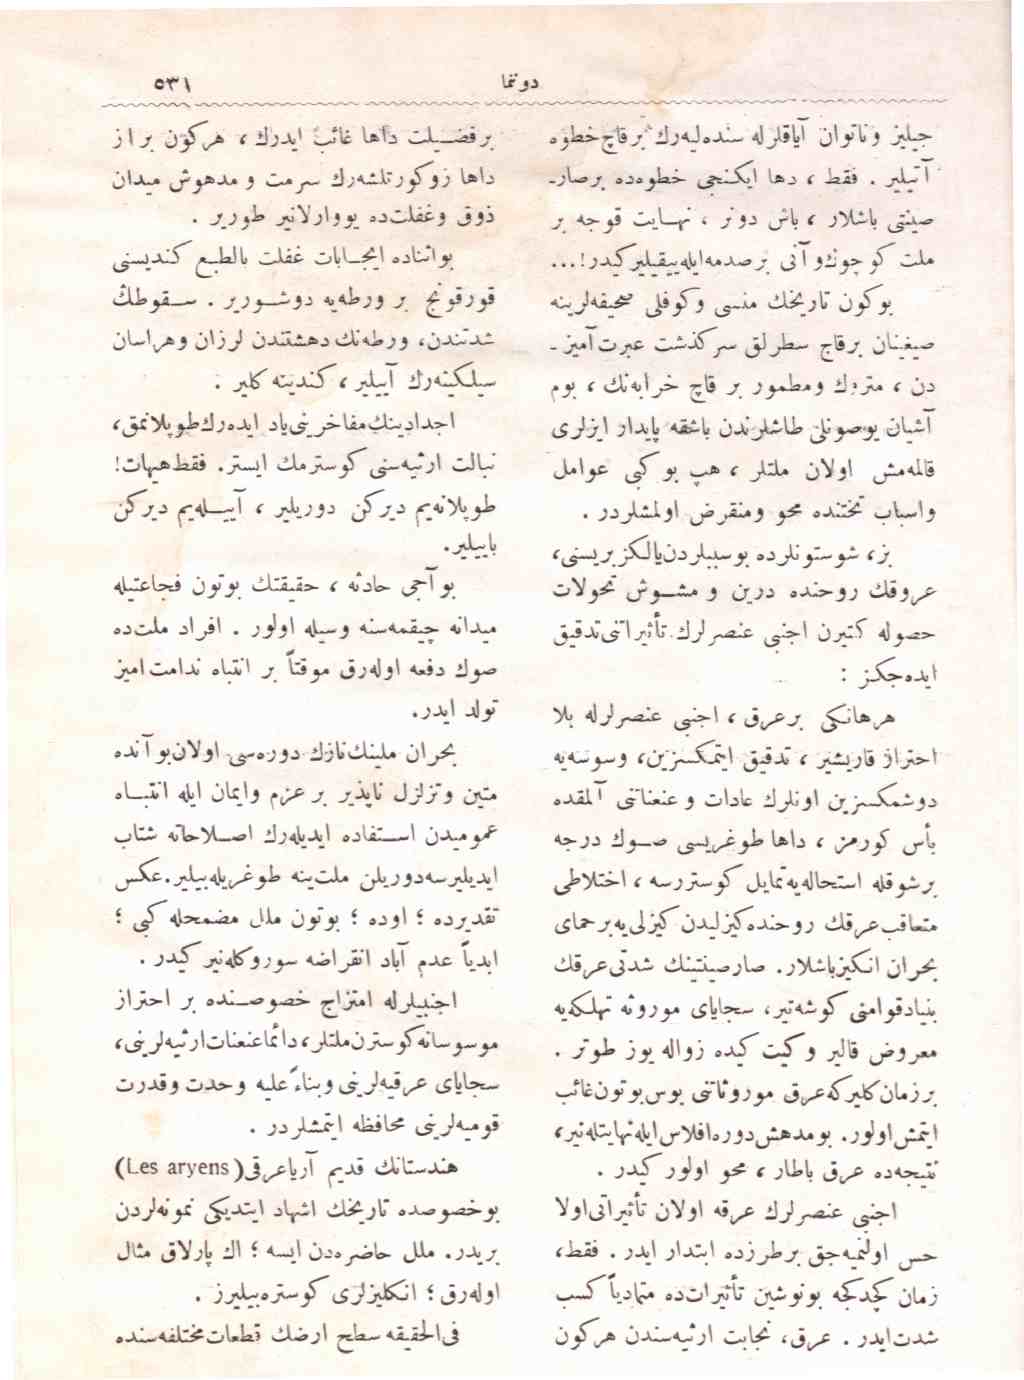 ٥٣١
دوننما
جیلیز و ناتوان آیاقلرله سنده‌لیه‌رك برقاچ خطوه
آتیلیر . فقط ، دها ایكنجی خطوه‌ده برصار-
صینتی باشلار ، باش دونر ، نهایت قوجه بر
ملت كوچوك و آنی برصدمه‌ایله ییقیلیر كیدر!...
بوكون تاریخك منسی و كوفلی صحیفه‌لرینه
صیغینان برقاچ سطرلق سركذشت عبرت آمیز-
دن ، متروك ومطمور بر قاچ خرابه‌نك ، بوم
آشیان یوصونلی طاشلرندن باشقه پایدار ایزلری
قالمه‌مش اولان ملتلر ، هپ بو كبی عوامل
واسباب تحتنده محو ومنقرض اولمشلردر .
بز، شوستونلرده بوسببلردن یالكز بریسنی،
عروقك روحنده درین و مشوش تحولات
حصوله كتیرن اجنبی عنصرلرك تأثیراتنی تدقیق
ایده‌جكز :
هرهانكی برعرق ، اجنبی عنصرلرله بلا
احتراز قاریشیر ، تدقیق ایتمكسزین، وسوسه‌یه
دوشمكسزین اونلرك عادات و عنعناتنی آلمقده
بأس كورمز ، داها طوغریسی صوك درجه
برشوقله استحاله‌یه تمایل كوستررسه ، اختلاطی
متعاقب عرقك روحنده كیزلیدن كیزلی‌یه برحمای
بحران انكیز باشلار. صارصینتینك شدتی عرقك
بنیاد قوامنی كوشه‌تیر، سجایای موروثه تهلكه‌یه
معروض قالیر و كیت كیده زواله یوز طوتر .
برزمان كلیركه عرق موروثاتنی بوس بوتون غائب
ایتمش اولور. بومدهش دوره افلاس ایله نهایتله‌نیر،
نتیجه‌ده عرق باطار ، محو اولور كیدر .
اجنبی عنصرلرك عرقه اولان تأثیراتی اولا
حس اولنمیه‌جق برطرزده ابتدار ایدر . فقط،
زمان كچدكجه بونوشین تأثیرات‌ده متمادیاً كسب
شدت ایدر . عرق، نجابت ارثیه‌سندن هركون
برفضیلت داها غائب ایدرك ، هركون براز
داها زوكورتلشه‌رك سرمت و مدهوش میدان
ذوق وغفلت‌ده یووارلانیر طوریر .
بواثناده ایجابات غفلت بالطبع كندیسنی
قورقونج بر ورطه‌یه دوشوریر . سقوطك
شدتندن، ورطه‌نك دهشتندن لرزان وهراسان
سیلكینه‌رك آییلیر ، كندینه كلیر .
اجدادینك مفاخرینی یاد ایده‌رك طوپلانمق،
نبالت ارثیه‌سنی كوسترمك ایستر. فقط هیهات!
طوپلانه‌یم دیركن دوریلیر ، آییله‌یم دیركن
باییلیر.
بو آجی حادثه ، حقیقتك بوتون فجاعتیله
میدانه چیقمه‌سنه وسیله اولور . افراد ملت‌ده
صوك دفعه اوله‌رق موقتاً بر انتباه ندامت آمیز
تولد ایدر.
بحران ملینك نازك دوره‌سی اولان بو آنده
متین و تزلزل ناپذیر بر عزم وایمان ایله انتباه
عمومیدن استفاده ایدیله‌رك اصلاحاته شتاب
ایدیلیرسه دوریلن ملت ینه طوغریله‌بیلیر. عكس
تقدیرده ؛ اوده ؛ بوتون ملل مضمحله كبی ؛
ابدیاً عدم آباد انقراضه سوروكله‌نیر كیدر .
اجنبیلرله امتزاج خصوصنده بر احتراز
موسوسانه كوسترن ملتلر، دائما عنعنات ارثیه‌لرینی،
سجایای عرقیه‌لرینی و بناءً علیه وحدت و قدرت
قومیه‌لرینی محافظه ایتمشلردر .
هندستانك قدیم آریا عرقی (Les aryens)
بوخصوصده تاریخك اشهاد ایتدیكی نمونه‌لردن
بریدر. ملل حاضره‌دن ایسه ؛ اك پارلاق مثال
اوله‌رق ؛ انكلیزلری كوستره‌بیلیرز .
فی‌الحقیقه سطح ارضك قطعات مختلفه‌سنده